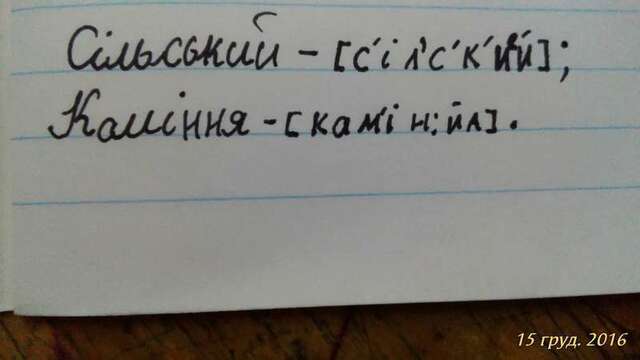 Сільський - [с'і л'с'к'ий];
Каміння - [камі н:йа].
15 груд. 2016